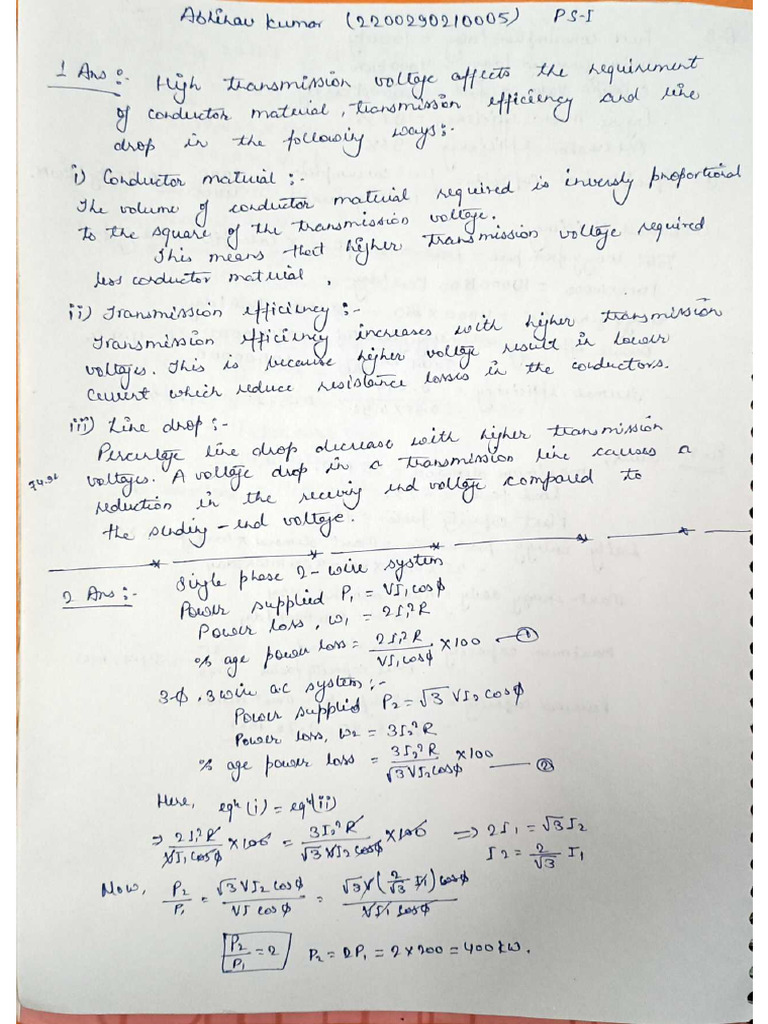 Abhinav Kumar (2200290210005) PS-I
1 Ans :- High transmission voltage affects the requirement
of conductor material, transmission efficiency and line
drop in the following ways:-
i) Conductor material :-
The volume of conductor material required is inversly proportional
to the square of the transmission voltage.
This means that higher transmission voltage required
less conductor material.
ii) Transmission efficiency :-
Transmission efficiency increases with higher transmission
voltages. This is because higher voltage result in lower
current which reduce resistance losses in the conductors.
iii) Line drop :-
Percentage line drop decrease with higher transmission
voltages. A voltage drop in a transmission line causes a
reduction in the receiving end voltage compared to
the sending-end voltage.
2 Ans :- Single phase 2-wire system
Power supplied P₁ = VI₁cosϕ
Power loss, w₁ = 2I₁²R
% age power loss = 2I₁²R / VI₁cosϕ × 100 — ①
3-ϕ, 3 wire a.c system :-
Power supplied P₂ = √3 VI₂ cosϕ
Power loss, w₂ = 3I₂²R
% age power loss = 3I₂²R / √3VI₂cosϕ × 100 — ②
Here, eqⁿ(i) = eqⁿ(ii)
⇒ 2I₁²R / VI₁cosϕ × 100 = 3I₂²R / √3 VI₂ cosϕ × 100 ⇒ 2I₁ = √3I₂
I₂ = 2/√3 I₁
Now, P₂/P₁ = √3VI₂cosϕ / VI cosϕ = √3V(2/√3 I₁)cosϕ / VI₁cosϕ
P₂/P₁ = 2 P₂ = 2P₁ = 2×200 = 400kW.